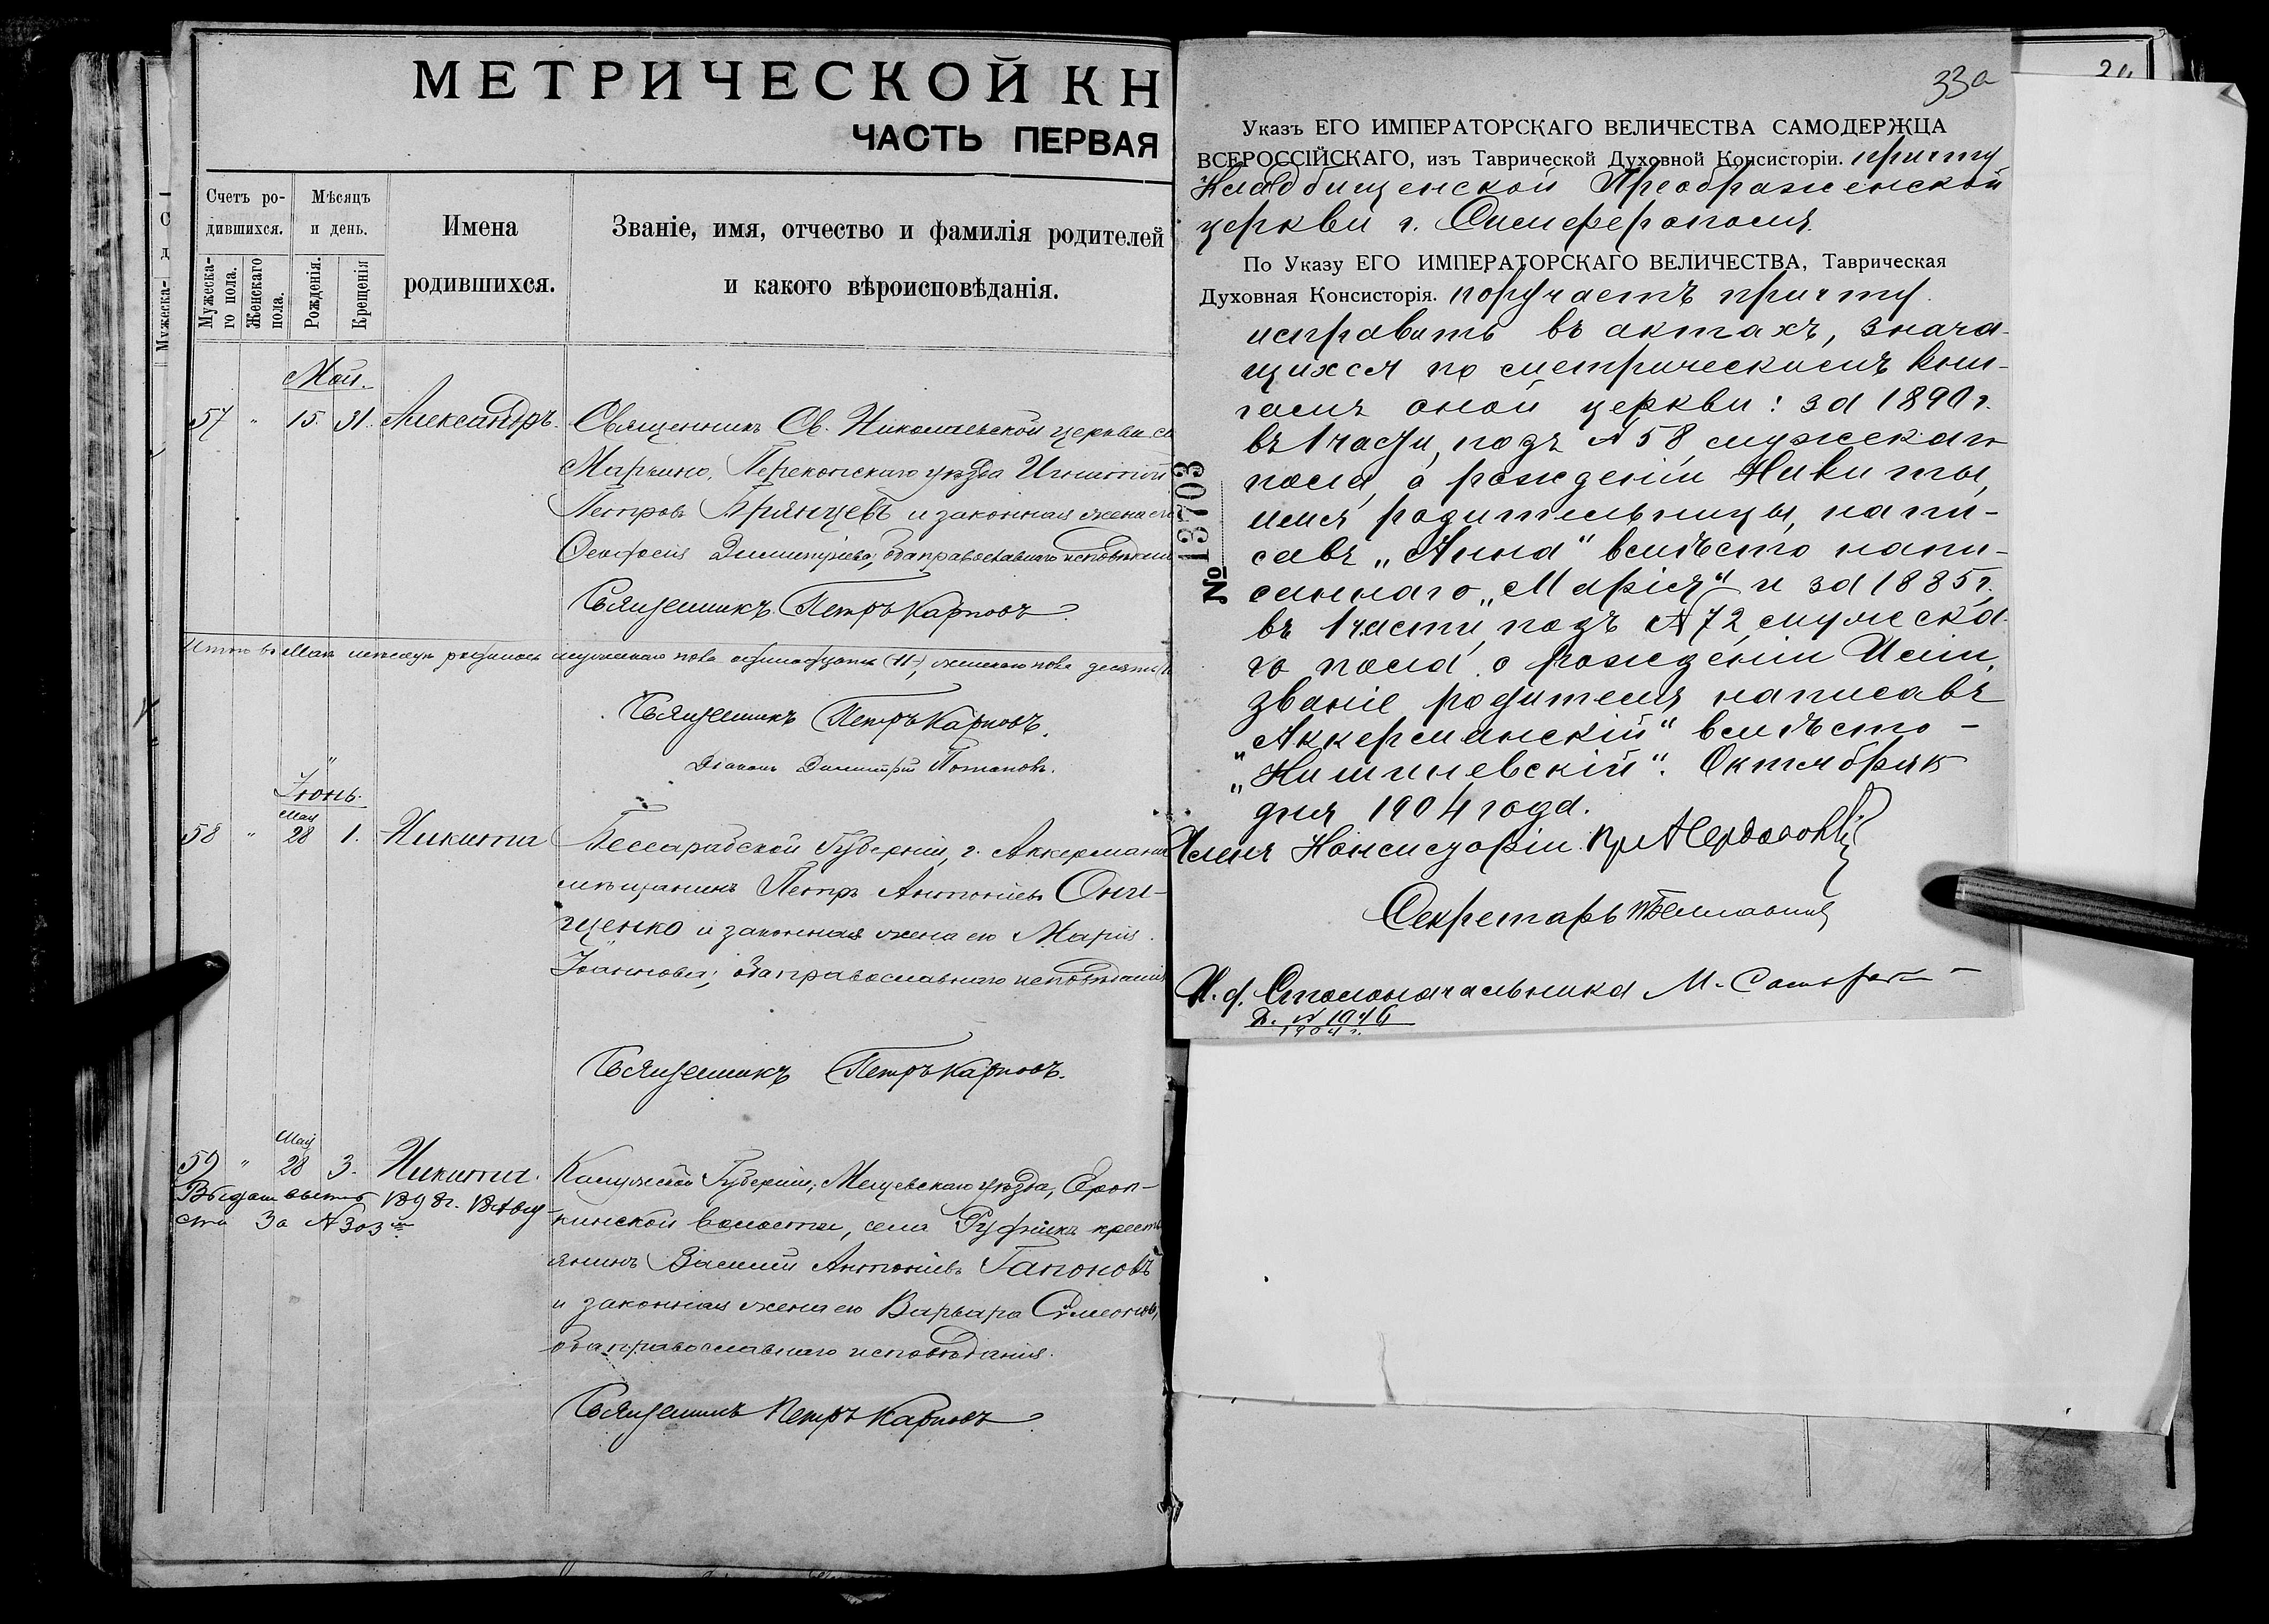 МЕТРИЧЕСКОЙ КН
ЧАСТЬ ПЕРВАЯ
Счетъ ро-
дившихся.
Мужеска-
го пола.
Женскаго
пола.
Мѣсяцъ
и день.
Рожденія.
Крещенія
Имена
родившихся.
Званіе, имя, отчество и фамилія родителей
и какого вѣроисповѣданія.
Мужеска-
Май.
57 " 15. 31. Александръ.
Священникъ Св. Николаевской церкви се
Марьино, Перекопскаго уѣзда Игнатій
Петровъ Брянцевъ и законная жена его
Феодосія Димитріева; оба православнаго исповѣдан
Священникъ Петръ Карповъ.
Итого въ Маѣ мѣсяцѣ родилось мужескаго пола одинадцать (11), женскаго пола десять
Священникъ Петръ Карповъ.
Діаконъ Димитрій Потаповъ.
Іюнь.
Май
58 " 28 1. Никита
Бессарабской Губерніи, г. Аккермана
мѣщанинъ Петръ Антоніевъ Они-
щенко и законная жена его Марія
Іоаннова; оба православнаго исповѣданія
Священникъ Петръ Карповъ.
Май
59 " 28 3. Никита.
Выдан выпис 1898 г. 18 Авгу-
ста За № 303
Калужской Губерніи, Мещевскаго уѣзда,
волости, села крест
янинъ Василій Антоніевъ Гапоновъ
и законная жена его Варвара Симеонов,
оба православнаго исповѣданія.
Священникъ Петръ Карповъ.
33а
Указъ ЕГО ИМПЕРАТОРСКАГО ВЕЛИЧЕСТВА САМОДЕРЖЦА
ВСЕРОССІЙСКАГО, изъ Таврической Духовной Консисторіи. причту
Кладбищенской Преображенской
церкви г. Симферополя.
По Указу ЕГО ИМПЕРАТОРСКАГО ВЕЛИЧЕСТВА, Таврическая
Духовная Консисторія. поручаетъ причту
исправить въ актахъ, знача-
щихся по метрическимъ кни-
гамъ оной церкви: за 1890 г.
въ 1 части, подъ № 58, мужскаго
пола, о рожденіи Никиты,
имя родительницы, напи-
савъ „Анна“ вмѣсто напи-
саннаго „Марія“ и за 1885 г.
въ 1 части подъ № 72, мужска-
го пола о рожденіи
званіе родителя написавъ
„Аккерманскій“ вмѣсто
„Кишиневскій“. Октября
дня 1904 года.
№ 13703
Членъ Консисторіи
Секретарь
И. д. Столоначальника М.
Д. № 1046
1904 г.